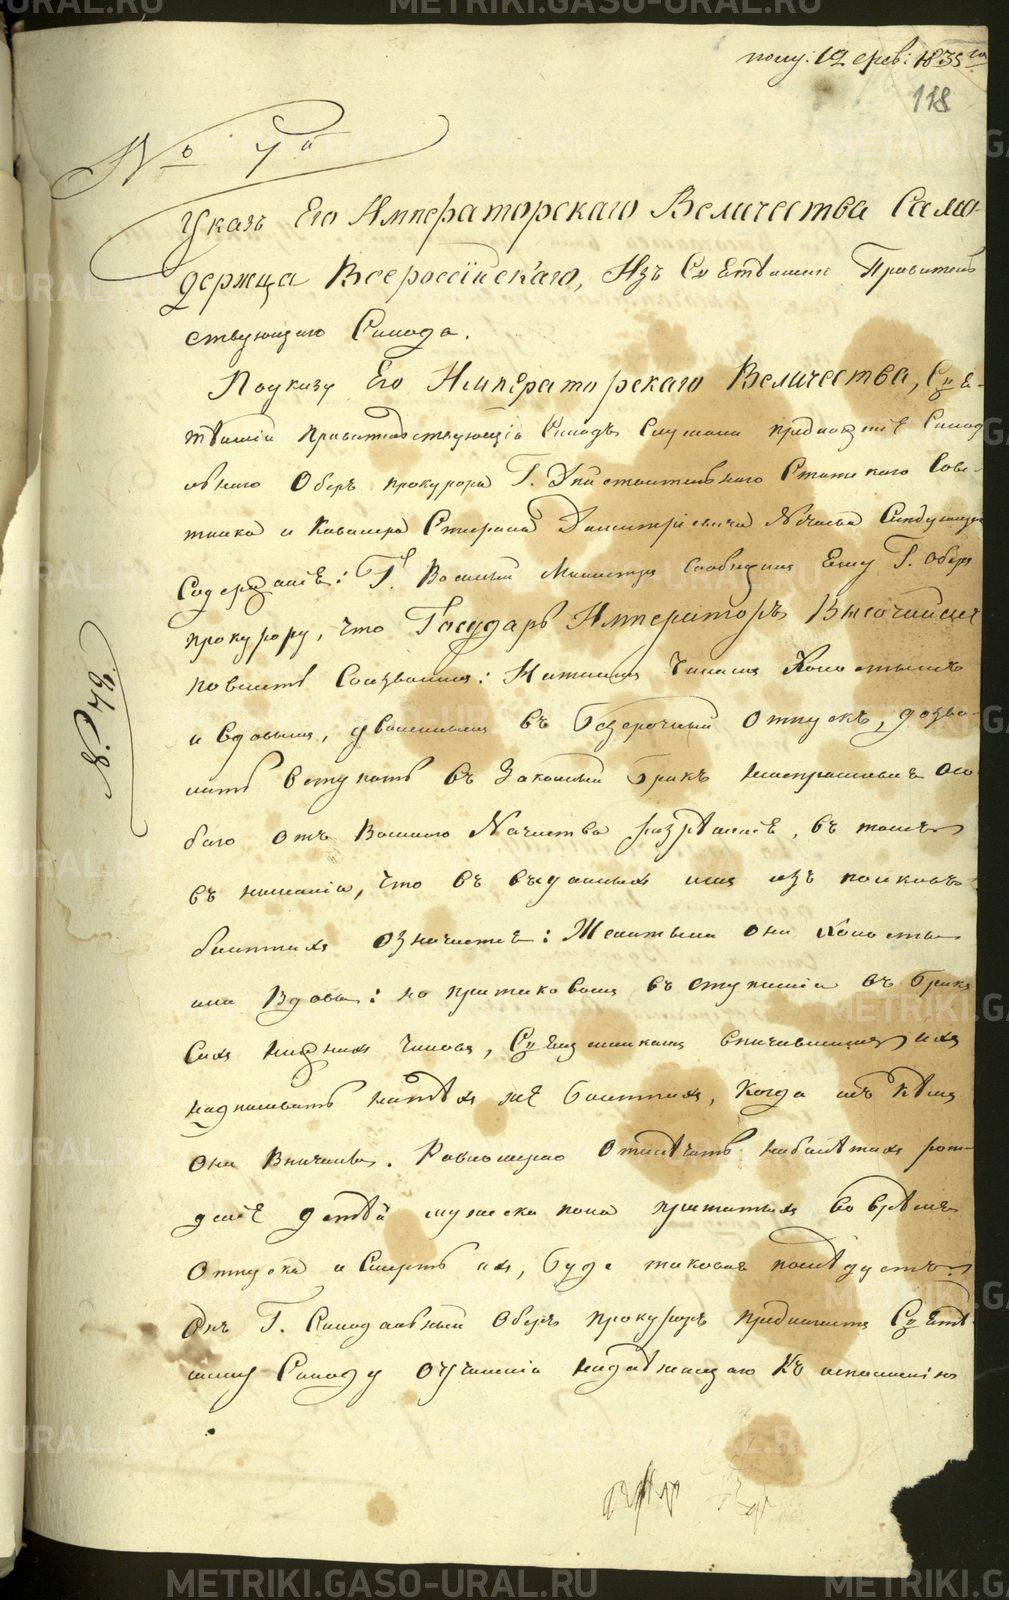 METRIKI.GASO-URAL.RU
полу: 12 фев: 1835 го
118
№ 7й
Указъ Его Императорскаго Величества Само-
держца Всероссійскаго, Изъ Святѣйшаго Правитель
ствующаго Синода.
По указу Его Императорскаго Величества, Свя-
тѣйшій Правительствующій Синодъ Слушали предложеніе Синод
альнаго Оберъ прокурора Г. Дѣйствительнаго Статскаго Сове-
тника и Кавалера Стефана Дмитріевича Нечаева Слѣдующаго
Содержанія: Г. Военный Министръ Сообщилъ Ему Г. Оберъ
прокурору, что Государь Императоръ Высочайше
повелѣть Соизволилъ: Нижнимъ Чинамъ Холостымъ
и вдовымъ, уволеннымъ въ безсрочный отпускъ, дозво-
лить вступать въ Законный бракъ неиспрашивая осо
баго отъ Военнаго Начальства разрѣшенія, въ томъ
вниманіи, что въ выданныхъ имъ изъ полковъ
билетахъ означится: Женаты ли они Холосты
или Вдовы: но при таковомъ вступленіи въ бракъ
Сихъ нижнихъ чиновъ, Священникамъ вѣнчавшимъ ихъ
надписывать на тѣхъ же билетахъ, Когда и съ кѣмъ
они вѣнчаны. Равномерно отмѣчать на билетахъ рож-
деніе дѣтей мужеска пола прижитыхъ во время
отпуска и Смерть ихъ, буде таковая послѣдуетъ.
Онъ Г. Синодальный Оберъ прокуроръ предлагаетъ Святѣй-
шему Синоду о учиненіи надлежащаго Къ исполненію
№ 746.
METRIKI.GASO-URAL.RU